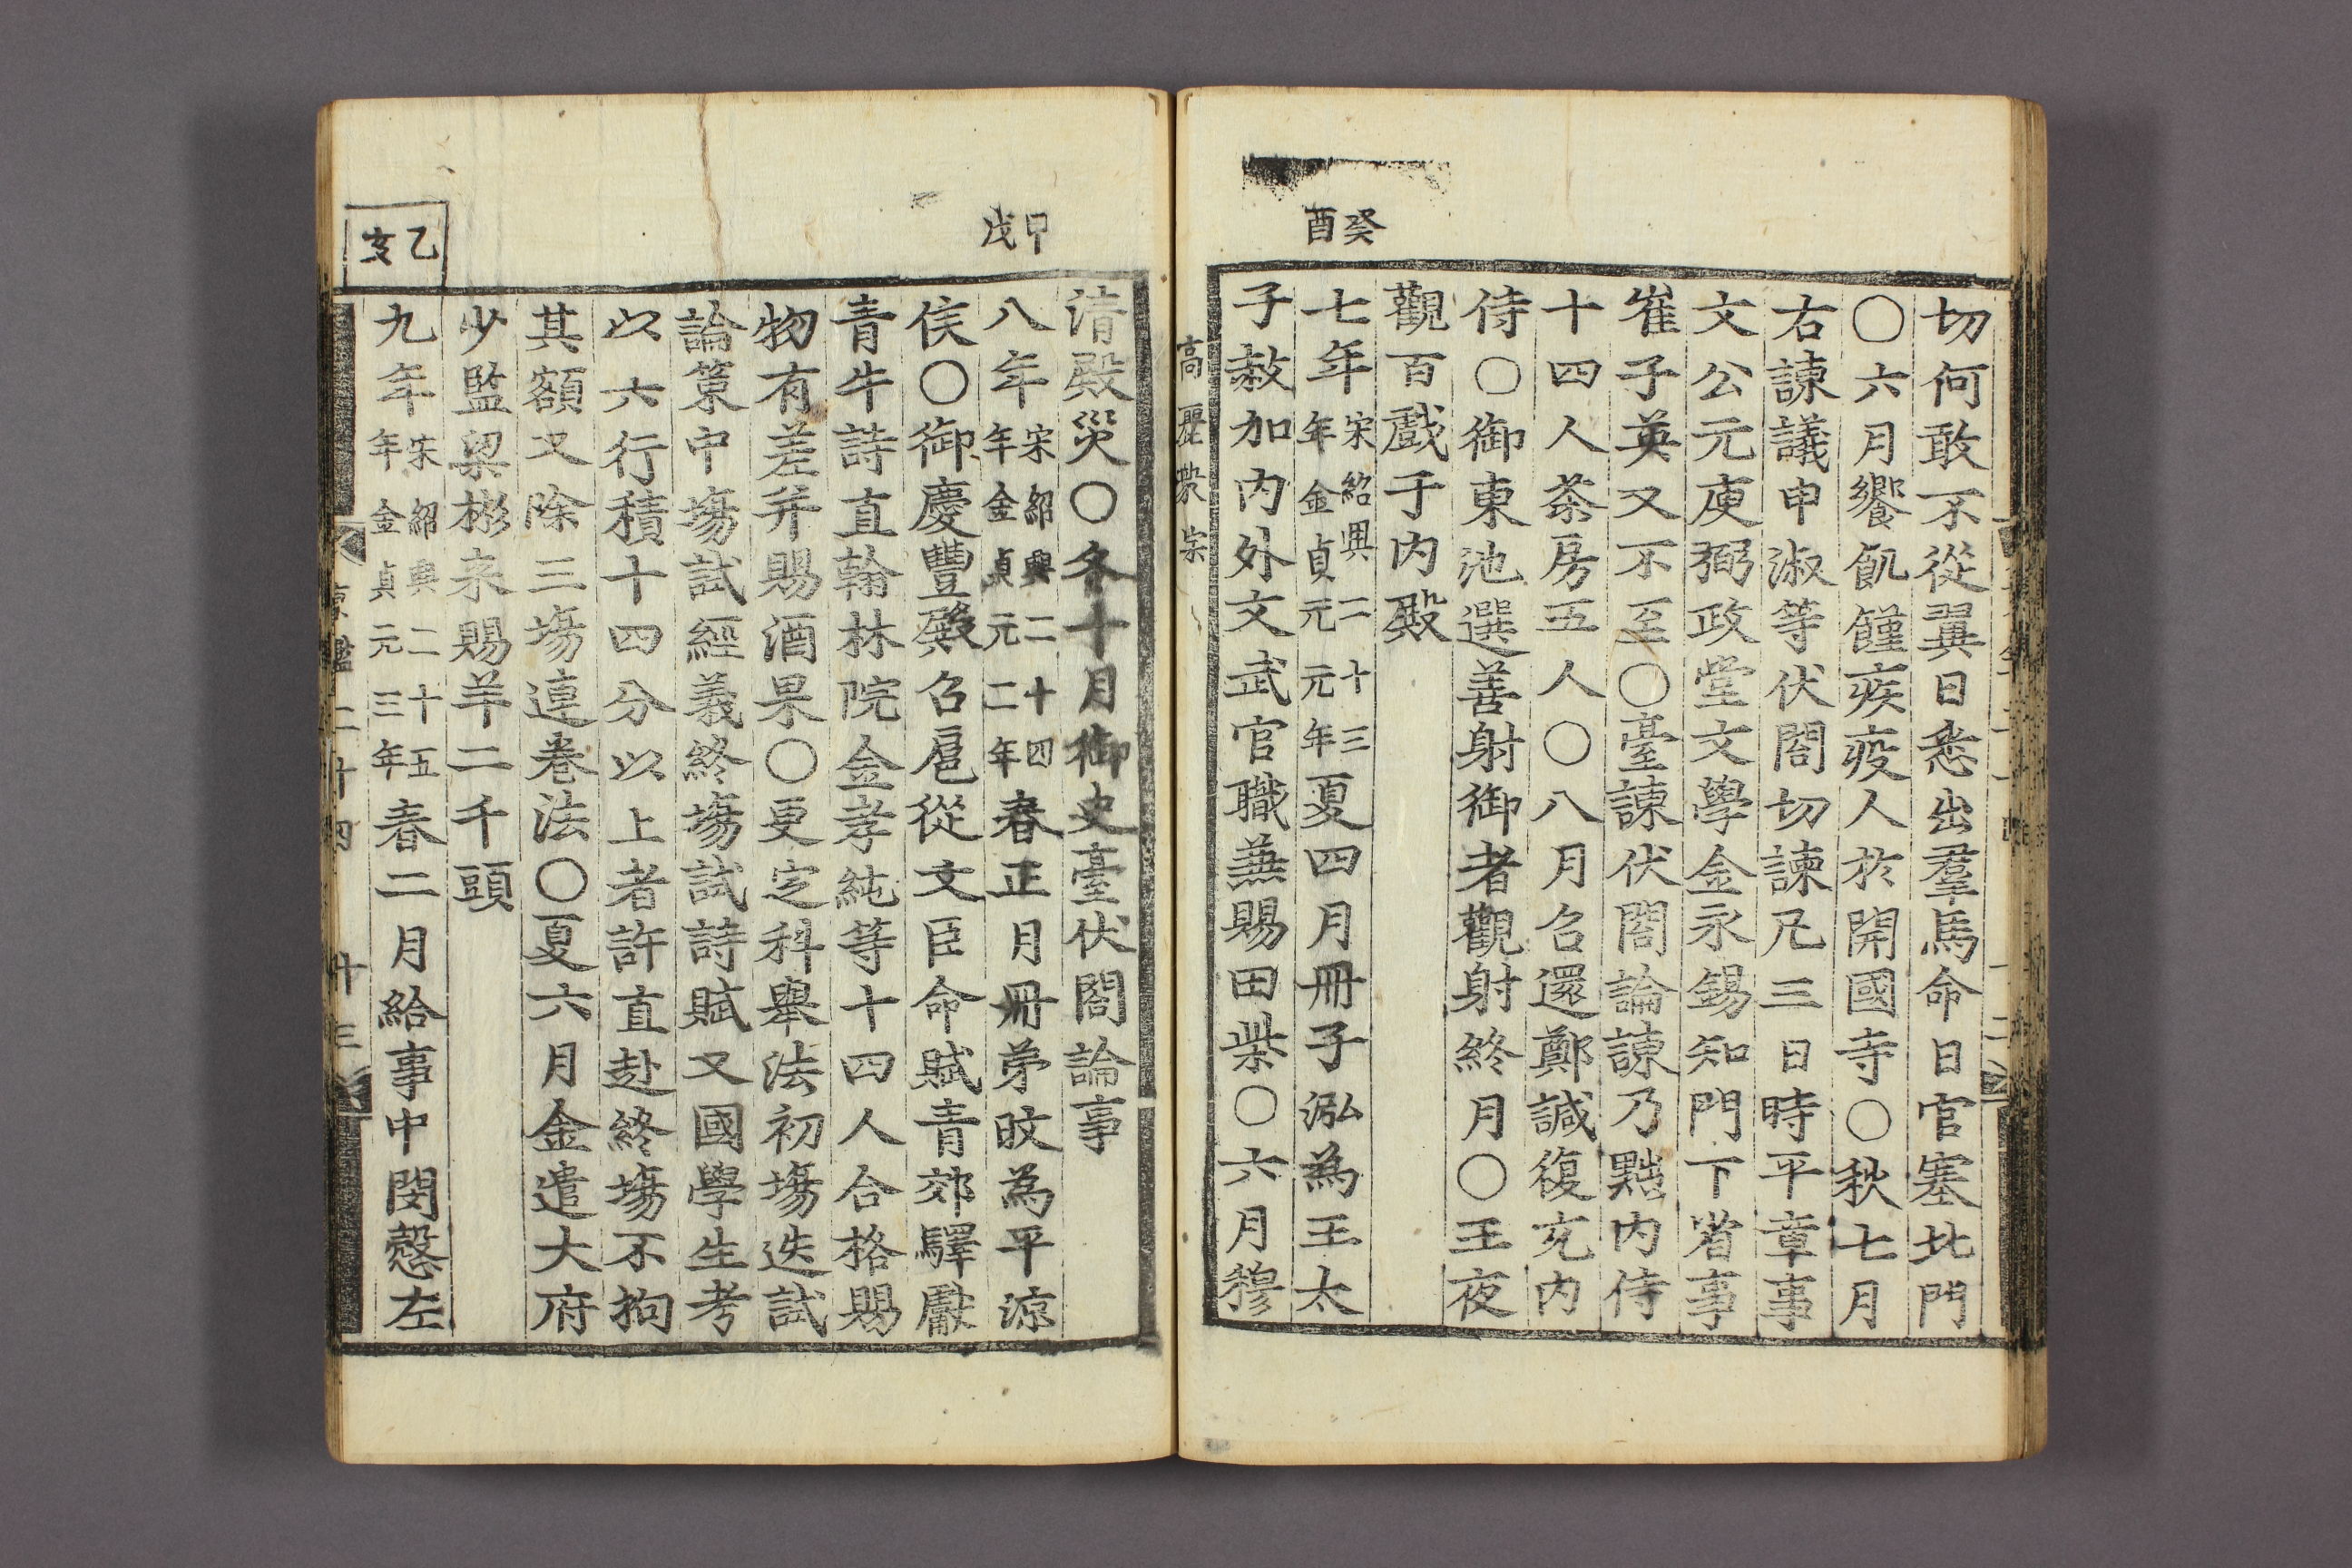 癸酉
切何敢不從翼日悉出羣馬命日官塞北門
○六月饗飢饉疾疫人於開國寺○秋七月
右諫議申淑等伏閤切諫凡三日時平章事
文公元庾弼政堂文學金永錫知門下省事
崔子英又不至○臺諫伏閤論諫乃黜內侍
十四人茶房五人○八月召還鄭諴復充內
侍○御東池選善射御者觀射終月○王夜
觀百戲于內殿
七年宋紹興二十三年金貞元元年夏四月冊子泓為王太
子赦加內外文武官職兼賜田柴○六月穆
高麗毅宗
甲戌
乙亥
淸殿災○冬十月御史臺伏閤論事
八年宋紹興二十四年金貞元二年春正月冊弟旼為平涼
侯○御慶豐殿召扈從文臣命賦靑郊驛獻
靑牛詩直翰林院金孝純等十四人合格賜
物有差并賜酒果○更定科舉法初塲迭試
論策中塲試經義終塲試詩賦又國學生考
以六行積十四分以上者許直赴終塲不拘
其額又除三塲連卷法○夏六月金遣大府
少監梁彬來賜羊二千頭
九年宋紹興二十五年金貞元三年春二月給事中閔慤左
鑑二十四 十三